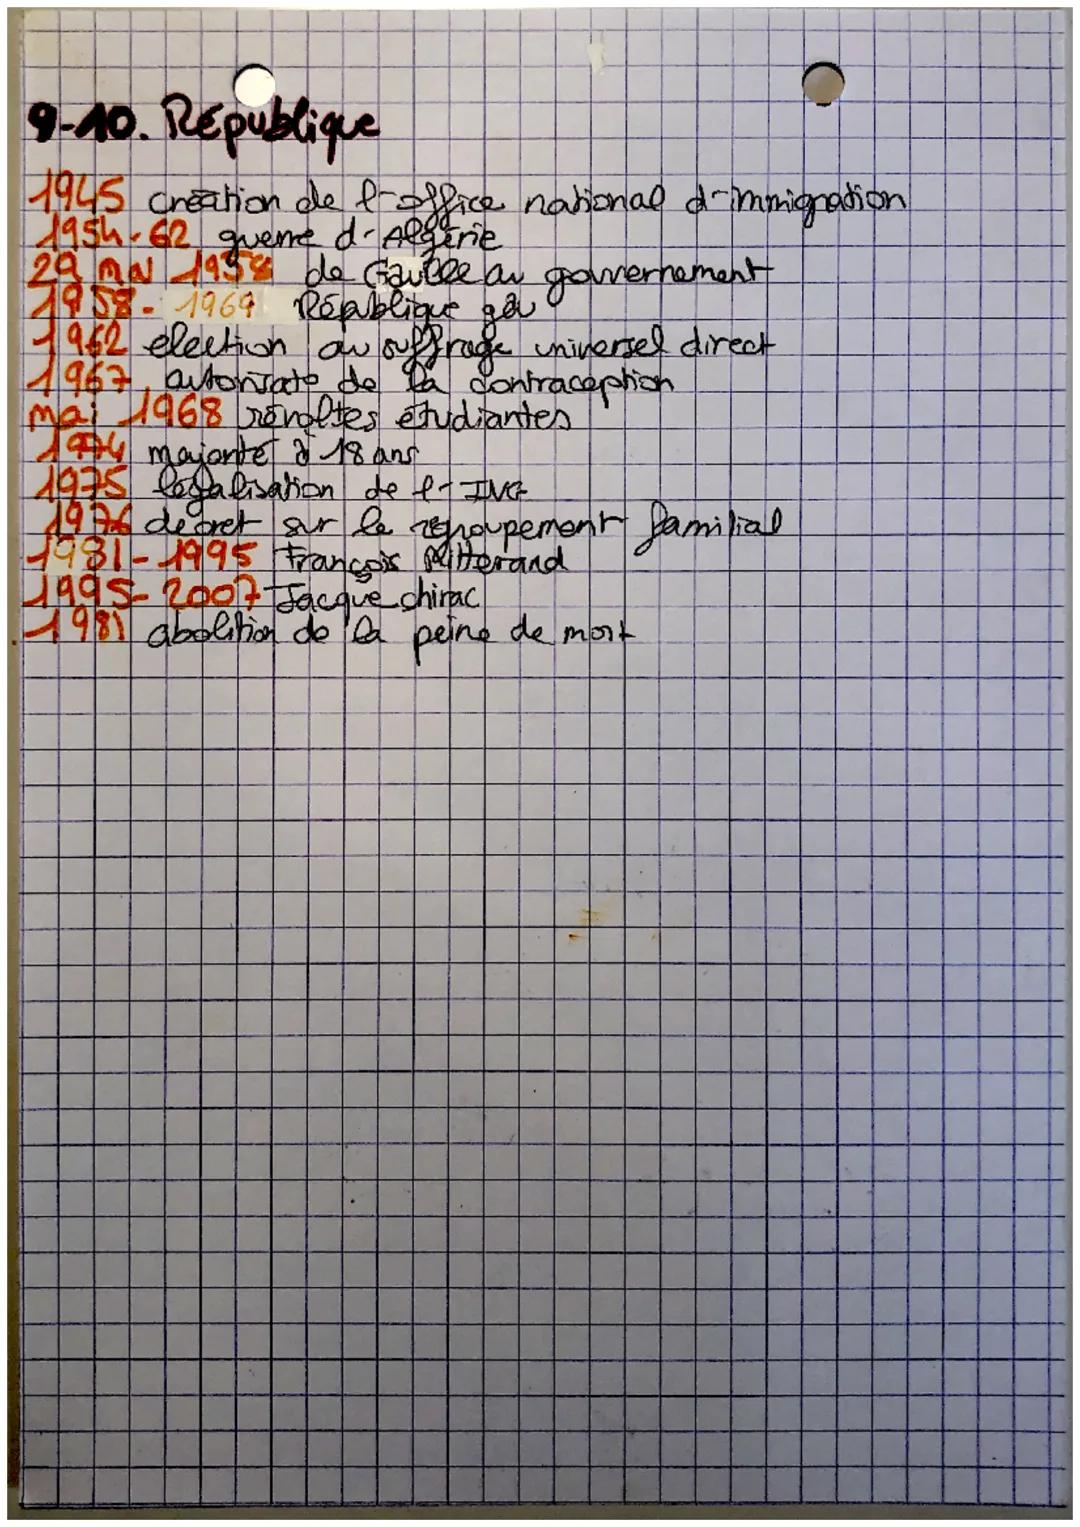 9-10. République
1945 création de l'office national d'immigration
1954-62 guerre d'Algérie
29 mai 1958 de Gaulle au gouvernement
1958-1969 République
1962 election au suffrage universel direct
1967 de la contraception
mai 1968 révoltes étudiantes
1974 majorité à 18 ans
1975 légalisation de l'IVG
1976 decret sur le regroupement familial
1981-1995 François Mitterand
1995-2007 Jacque chirac
1981 abolition de la peine de mort